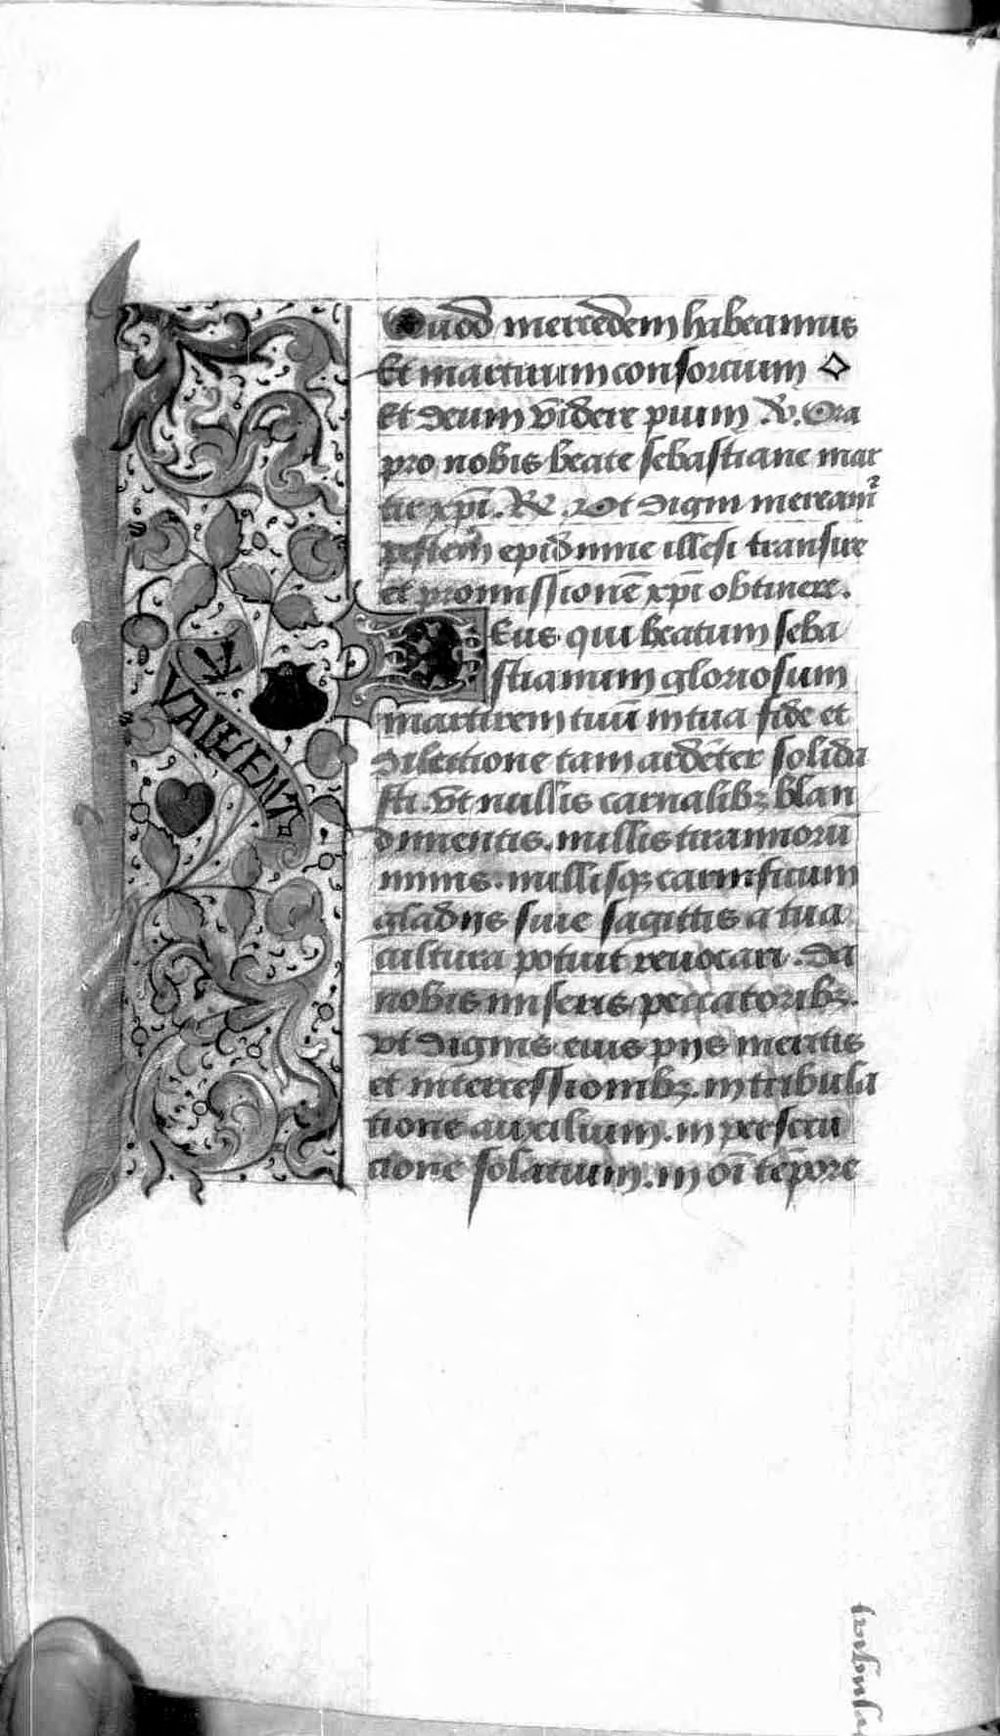 Quod mercedem habeamus
Et martirum consorcium
Et deum videre pium ℟. Ora
pro nobis beate sebastiane mar
tir xp̄i. ℟. Ut digni mereamr̄
pestem epidimie illesi transire
et promissionē xp̄i obtinere.
Deus qui beatum seba
stianum gloriosum
martirem tuū in tua fide et
dilectione tam ardēter solida
sti. vt nullis carnalibꝫ blan
dimentis. nullis tirannorū
minis. nullisqꝫ carnificum
gladijs siue sagittis a tua
cultura potuit reuocari. Da
nobis miseris peccatoribꝫ.
vt dignis eius pijs meritis
et intercessionibꝫ. in tribula
tione auxilium. in persecu
cione solatium. in oī tēpore
VAILLENT